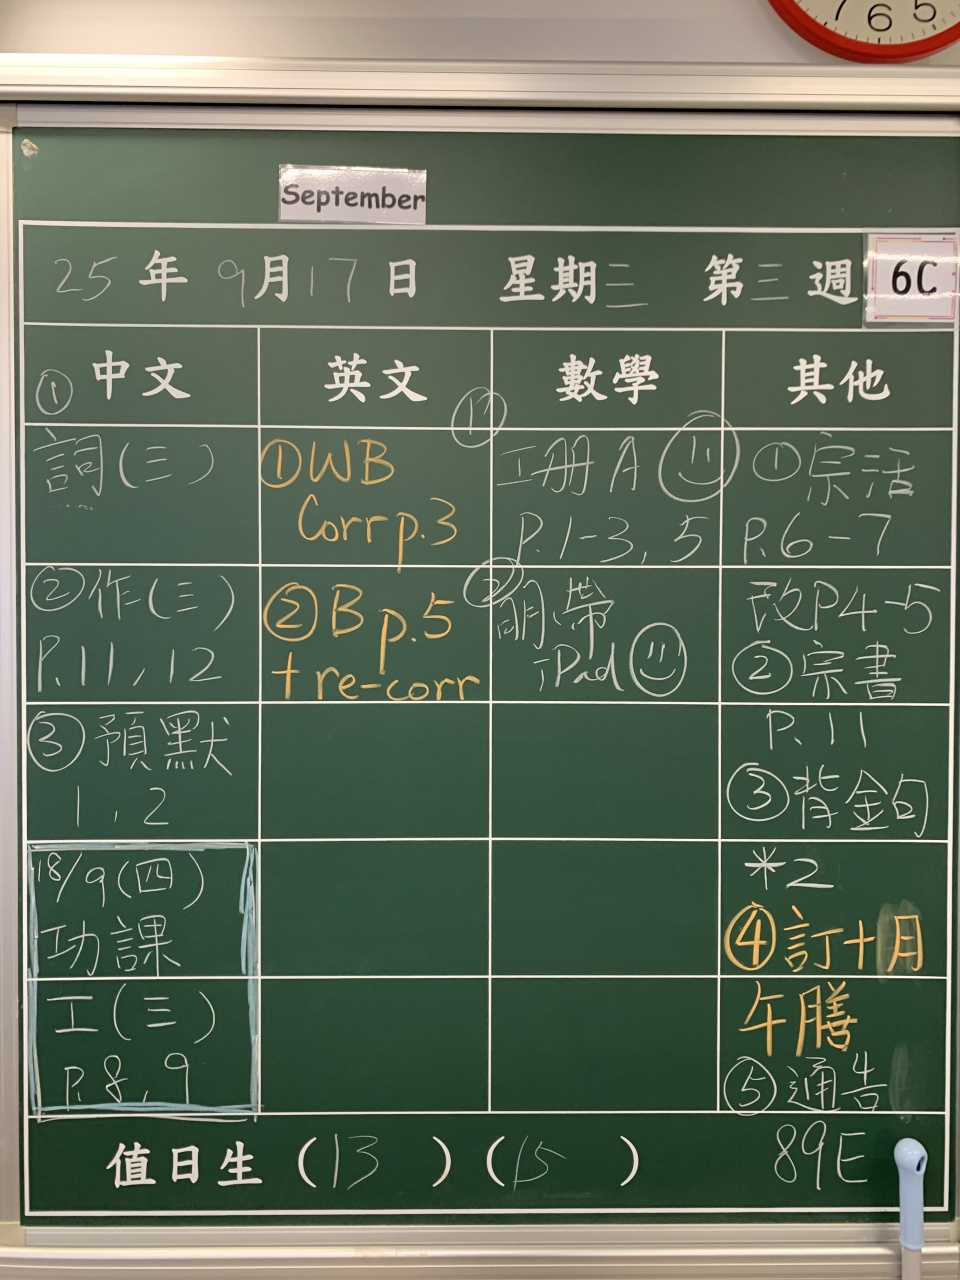 7 6 5
September
25年9月17日 星期三 第三週 6C
中文 英文 數學 其他
① 詞(三)
② 作(三)
P.11, 12
③ 預默
1, 2
18/9(四)
功課
工(三)
P.8, 9
① WB
Corr p.3
② B p.5
+ re-corr
① 工冊A
P.1-3, 5
② 明帶
iPad
① 宗活
P.6-7
改P4-5
② 宗書
P.11
③ 背金句
*2
④ 訂十月
午膳
⑤ 通告
89E
值日生 (13) (15)